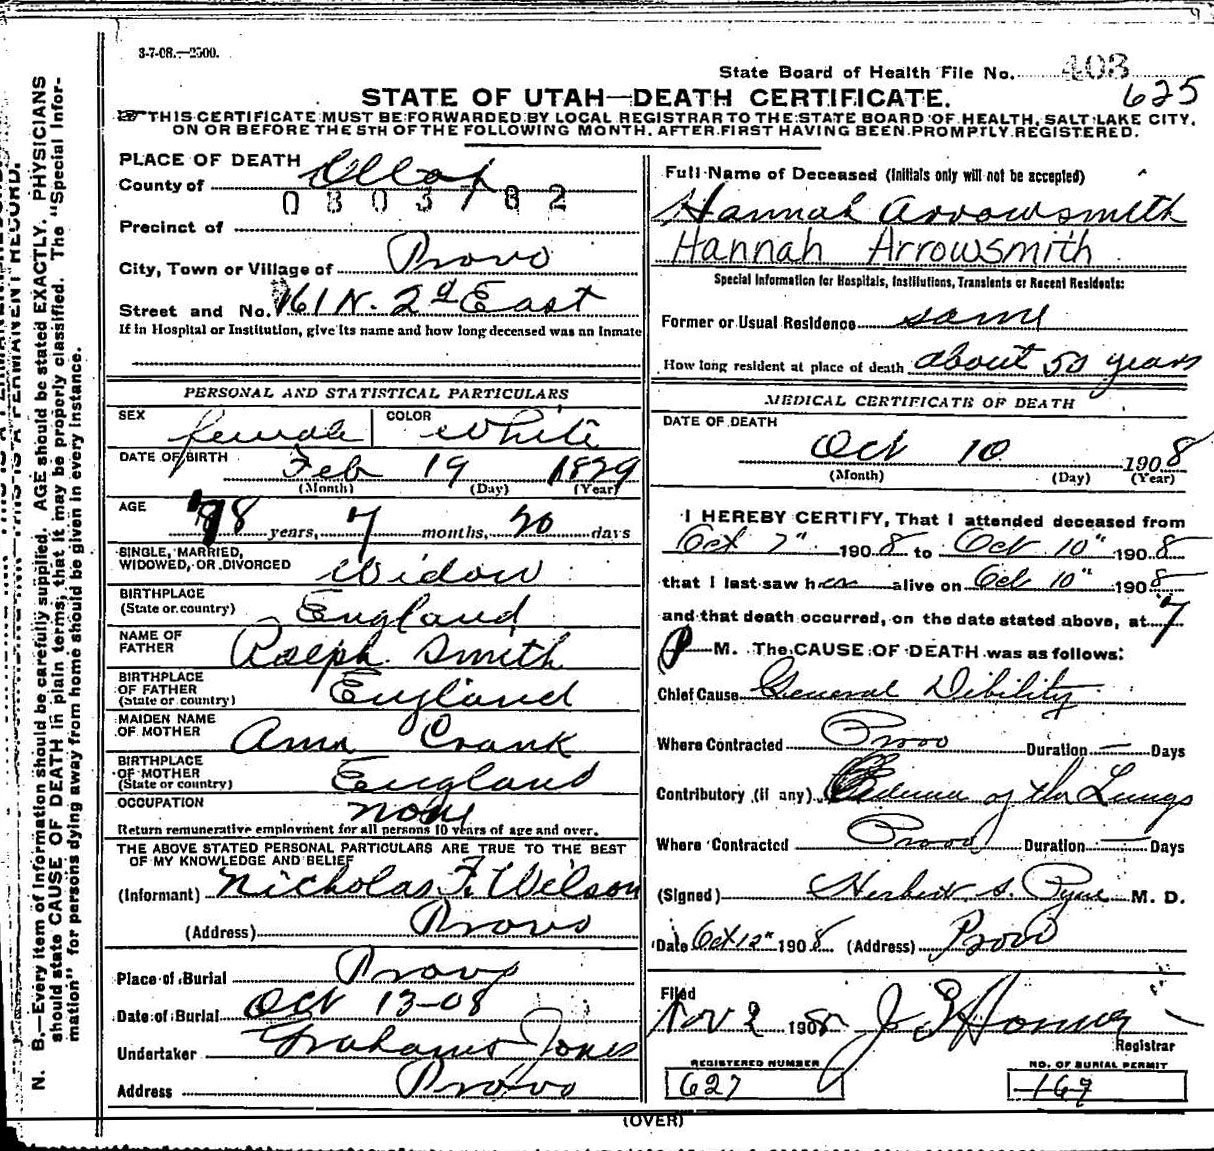 3-7-08.—2500.
State Board of Health File No. 403
625
STATE OF UTAH—DEATH CERTIFICATE.
THIS CERTIFICATE MUST BE FORWARDED BY LOCAL REGISTRAR TO THE STATE BOARD OF HEALTH, SALT LAKE CITY,
ON OR BEFORE THE 5TH OF THE FOLLOWING MONTH, AFTER FIRST HAVING BEEN PROMPTLY REGISTERED.
N. B.—Every item of information should be carefully supplied. AGE should be stated EXACTLY. PHYSICIANS
should state CAUSE OF DEATH in plain terms, that it may be properly classified. The "Special Infor-
mation" for persons dying away from home should be given in every instance.
PLACE OF DEATH
County of Utah
0303782
Precinct of
City, Town or Village of Provo
Street and No. 161 N. 2d East
If in Hospital or Institution, give its name and how long deceased was an Inmate
PERSONAL AND STATISTICAL PARTICULARS
SEX female COLOR White
DATE OF BIRTH Feb 19 1829
(Month) (Day) (Year)
AGE 78 years, 7 months, 20 days
SINGLE, MARRIED,
WIDOWED, OR DIVORCED Widow
BIRTHPLACE
(State or country) England
NAME OF
FATHER Ralph Smith
BIRTHPLACE
OF FATHER
(State or country) England
MAIDEN NAME
OF MOTHER Ann Crank
BIRTHPLACE
OF MOTHER
(State or country) England
OCCUPATION none
Return remunerative employment for all persons 10 years of age and over.
THE ABOVE STATED PERSONAL PARTICULARS ARE TRUE TO THE BEST
OF MY KNOWLEDGE AND BELIEF
(Informant) Nicholas F. Wilson
(Address) Provo
Place of Burial Provo
Date of Burial Oct 13-08
Undertaker Grahams Jones
Address Provo
Full Name of Deceased (Initials only will not be accepted)
Hannah Arrowsmith
Hannah Arrowsmith
Special Information for Hospitals, Institutions, Transients or Recent Residents:
Former or Usual Residence same
How long resident at place of death about 50 years
MEDICAL CERTIFICATE OF DEATH
DATE OF DEATH
Oct 10 1908
(Month) (Day) (Year)
I HEREBY CERTIFY, That I attended deceased from
Oct 7" 1908 to Oct 10" 1908
that I last saw her alive on Oct 10" 1908
and that death occurred, on the date stated above, at 7
P M. The CAUSE OF DEATH was as follows:
Chief Cause General Dibility
Where Contracted Provo Duration — Days
Contributory (if any) Edema of the Lungs
Where Contracted Provo Duration — Days
(Signed) Herbert S. Pyne M. D.
Date Oct 12" 1908 (Address) Provo
Filed
Nov 2 1908 J
Registrar
REGISTERED NUMBER
627
NO. OF BURIAL PERMIT
169
(OVER)